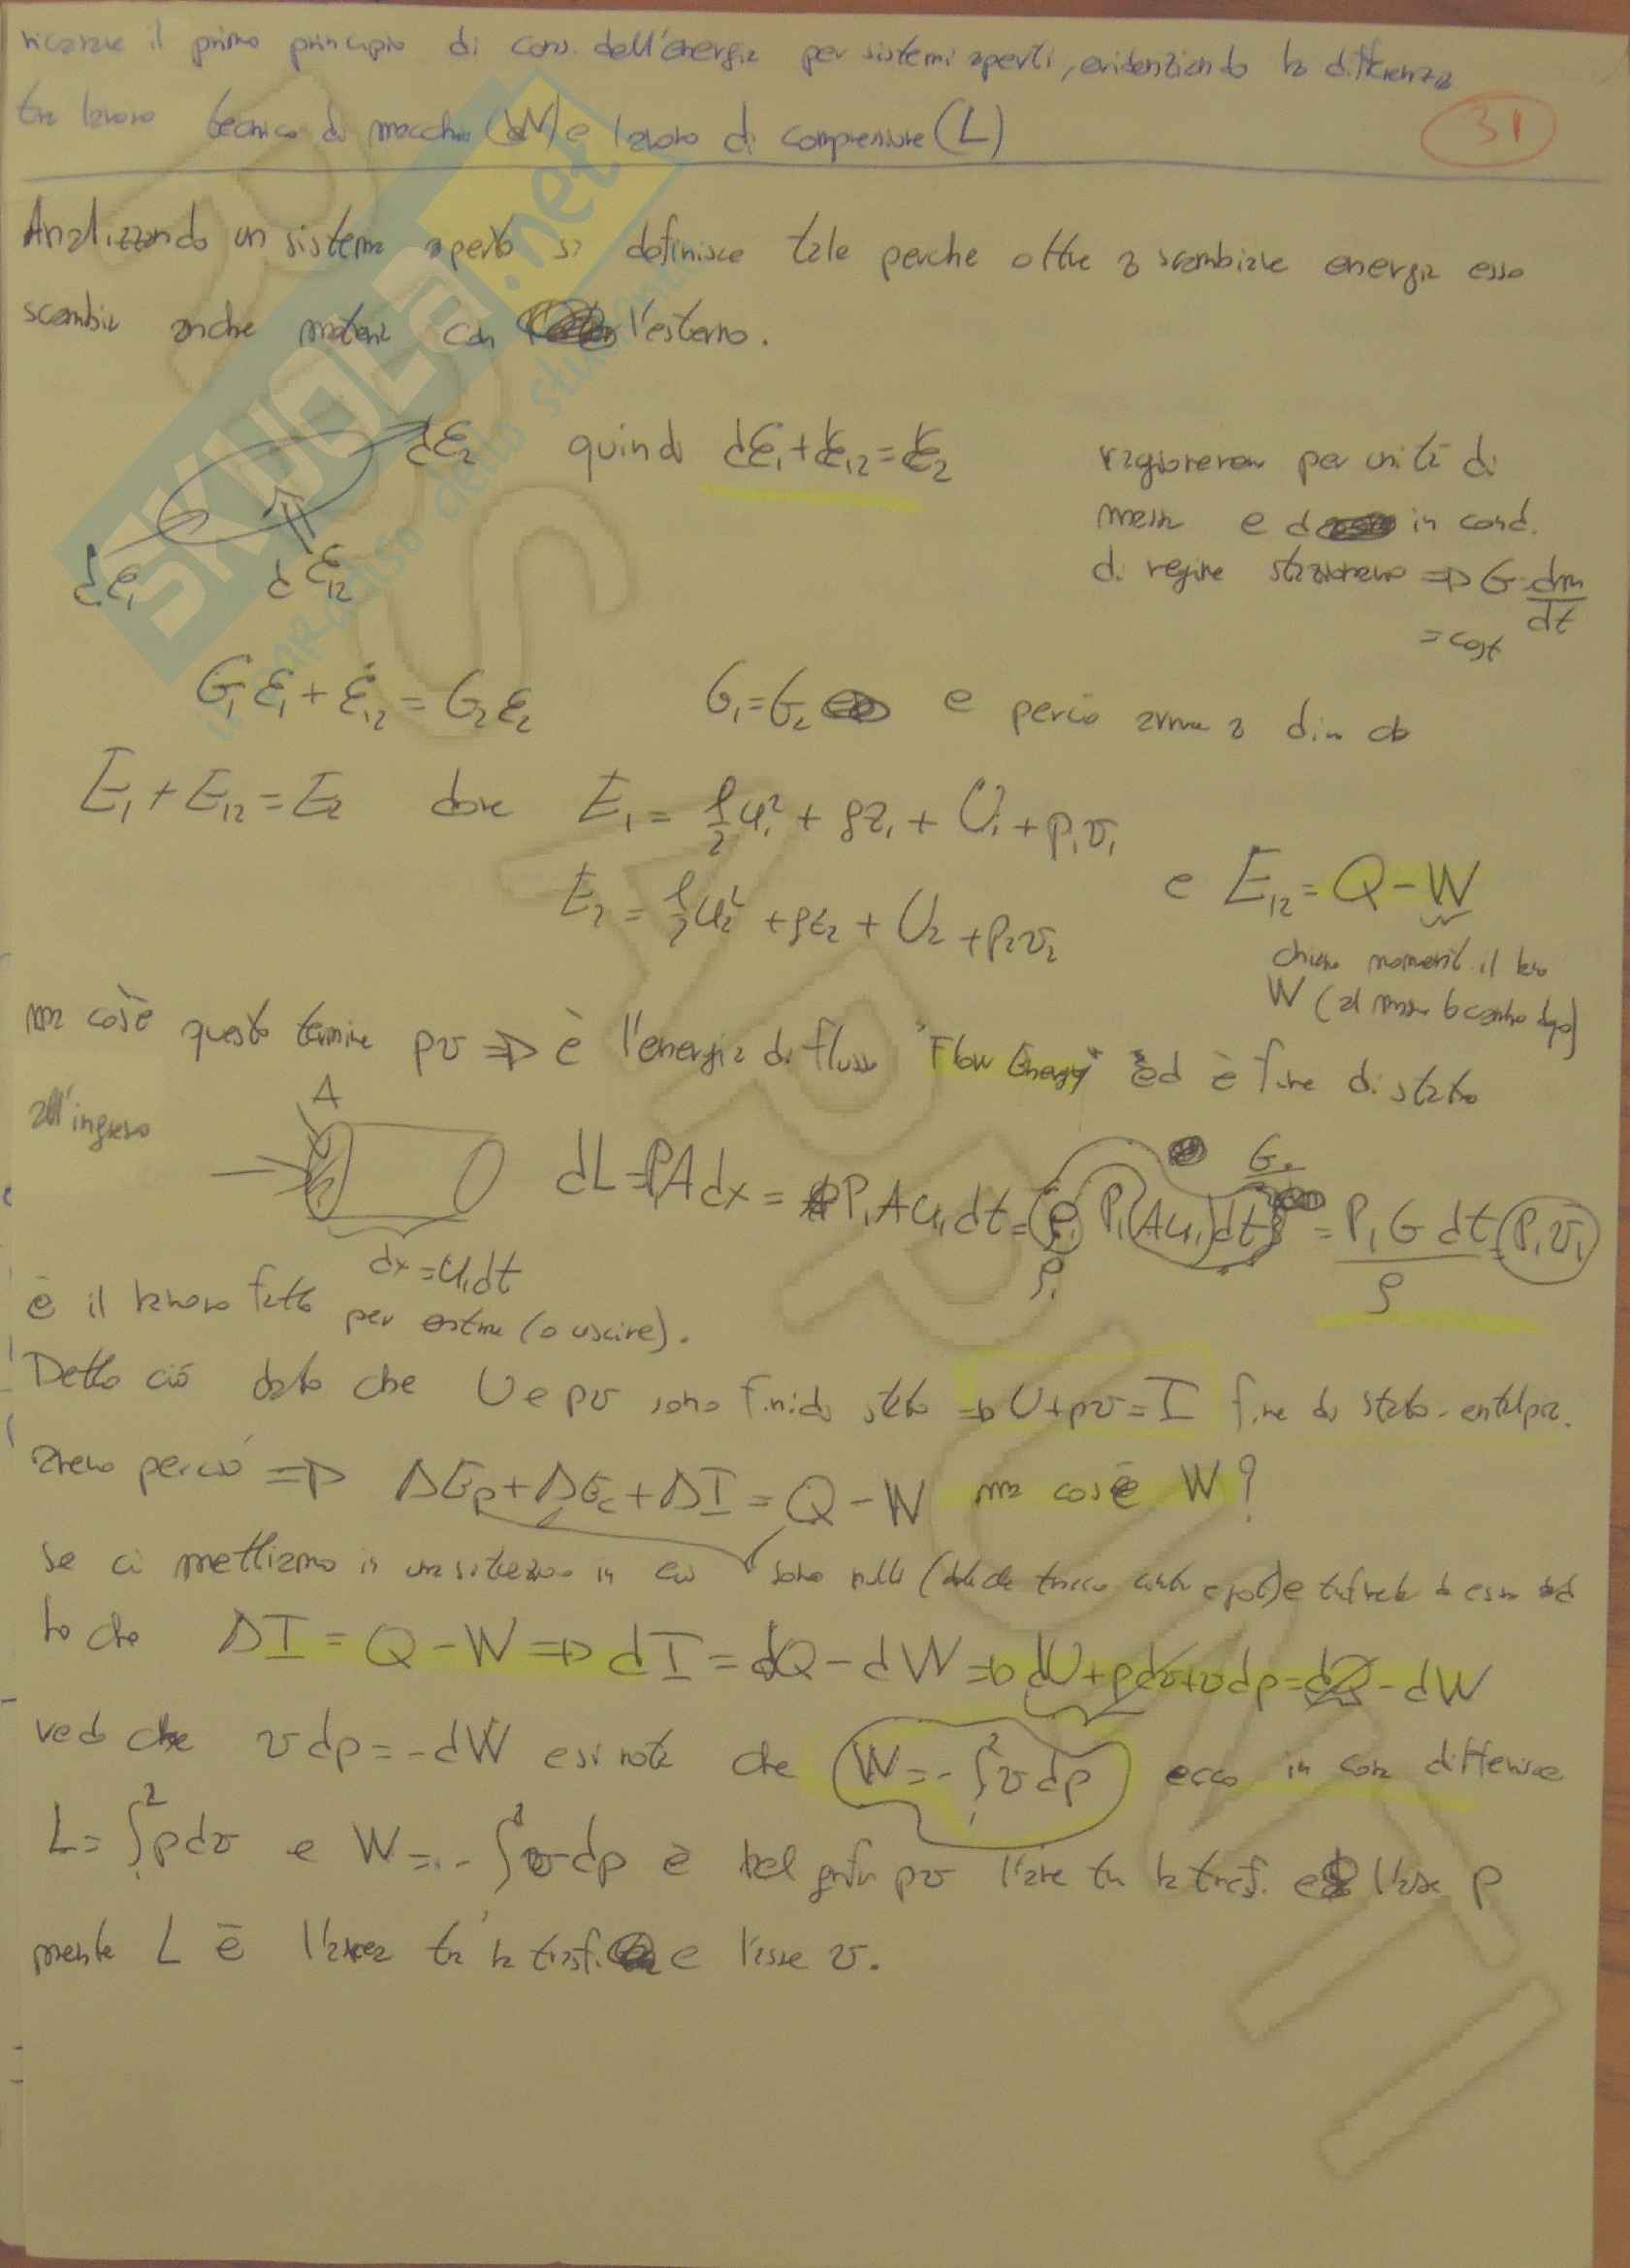 ricavare il primo principio di cons. dell'energia per sistemi aperti, evidenziando la differenza
tra lavoro tecnico di macchina (W) e lavoro di compressione (L)
31
Analizzando un sistema aperto si definisce tale perche oltre a scambiare energia esso
scambia anche materia con l'esterno.
dℰ₂ quindi dℰ₁+dℰ₁₂=dℰ₂
ragioneremo per unità di
massa e in cond.
di regime stazionario => G=dm/dt
= cost
dℰ₁ dℰ₁₂
G₁ℰ₁+ℰ̇₁₂=G₂ℰ₂ G₁=G₂ e perciò
E₁+E₁₂=E₂ dove E₁=½u₁²+gz₁+U₁+p₁v₁
E₂=½u₂²+gz₂+U₂+p₂v₂
e E₁₂=Q-W
W
ma cos'è questo termine pv => è l'energia di flusso "Flow Energy" ed è f.ne di stato
all'ingresso
A
dL=PAdx=P₁Au₁dt= P₁(Au₁)dt = P₁Gdt/ρ = P₁v₁
dx=u₁dt
è il lavoro fatto per entrare (o uscire).
Detto ciò dato che U e pv sono f.ni di stato => U+pv=I f.ne di stato-entalpia.
avremo perciò => ΔEp+ΔEc+ΔI=Q-W ma cos'è W?
se ci mettiamo in una situazione in cui sono nulli
ho che ΔI=Q-W => dI=dQ-dW => dU+pdv+vdp=dQ-dW
vedo che vdp=-dW e si nota che W=-∫₁²vdp ecco in cosa differisce
L=∫₁²pdv e W=-∫₁²vdp è nel grafico pv l'area tra la trasf. e l'asse p
mentre L è l'area tra la trasf. e l'asse v.
SKUOLA.net